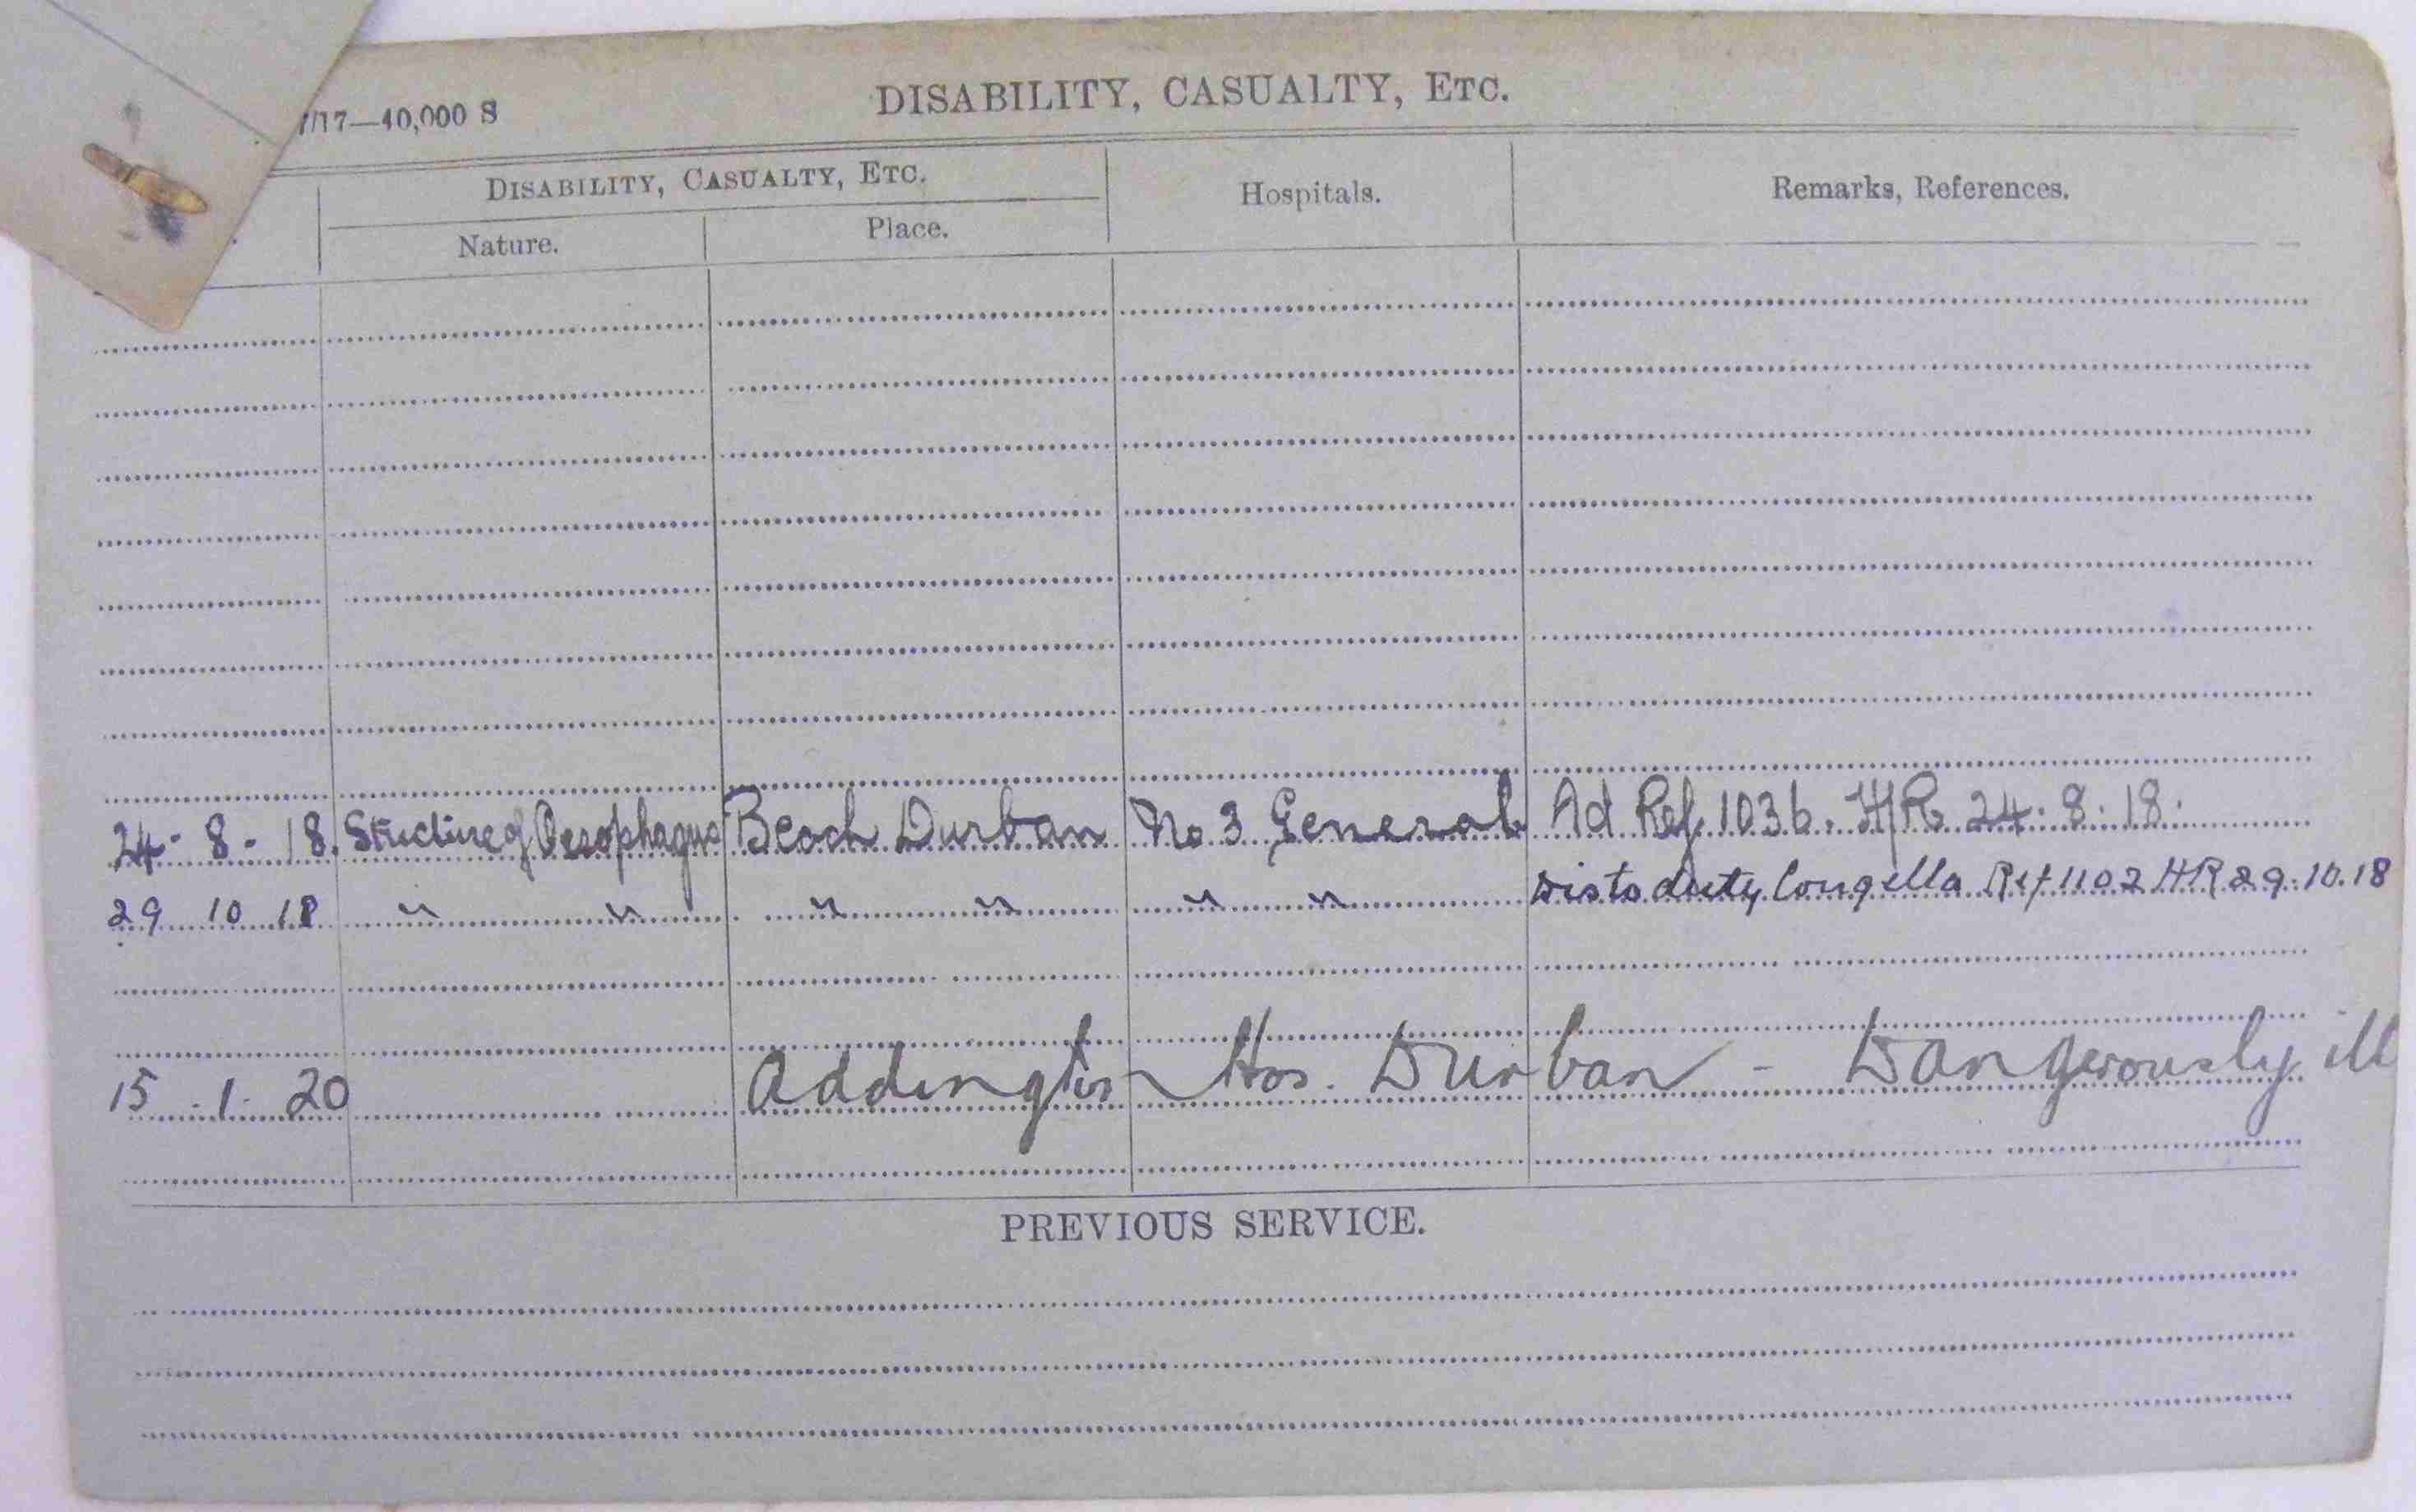 7/17—40,000 S
DISABILITY, CASUALTY, ETC.
DISABILITY, CASUALTY, ETC.
Hospitals.
Remarks, References.
Nature.
Place.
24 - 8 - 18. Stricture of Oesophagus Beach Durban No 3 General Ad Ref 1036. H/R 24.8.18.
29 10 18 " " " " " " Dis to duty Congella Ref 1102 HR 29.10.18
15 . 1 . 20 Addington Hos. Durban - Dangerously ill
PREVIOUS SERVICE.